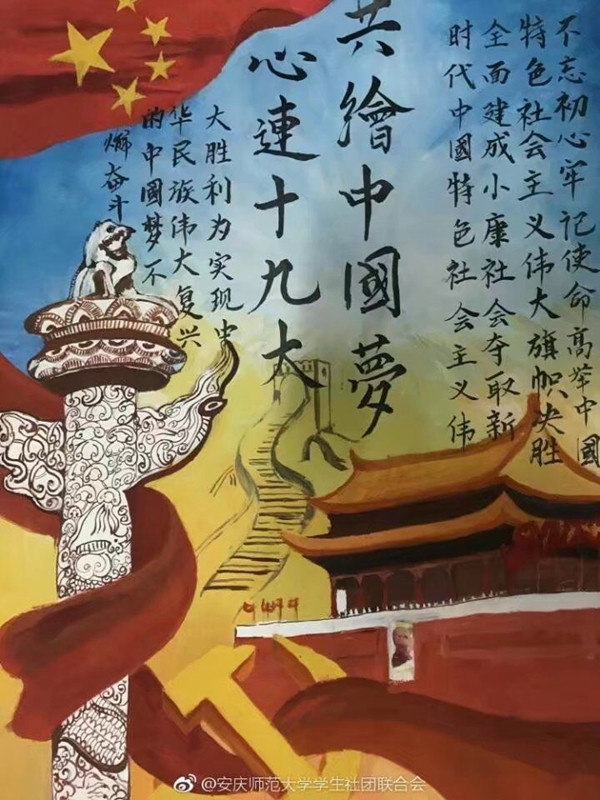 共繪中國夢
心連十九大
不忘初心牢记使命高举中國
特色社会主义伟大旗帜决胜
全面建成小康社会夺取新
时代中國特色社会主义伟
大胜利为实现中
华民族伟大复兴
的中國梦不
懈奋斗
@安庆师范大学学生社团联合会